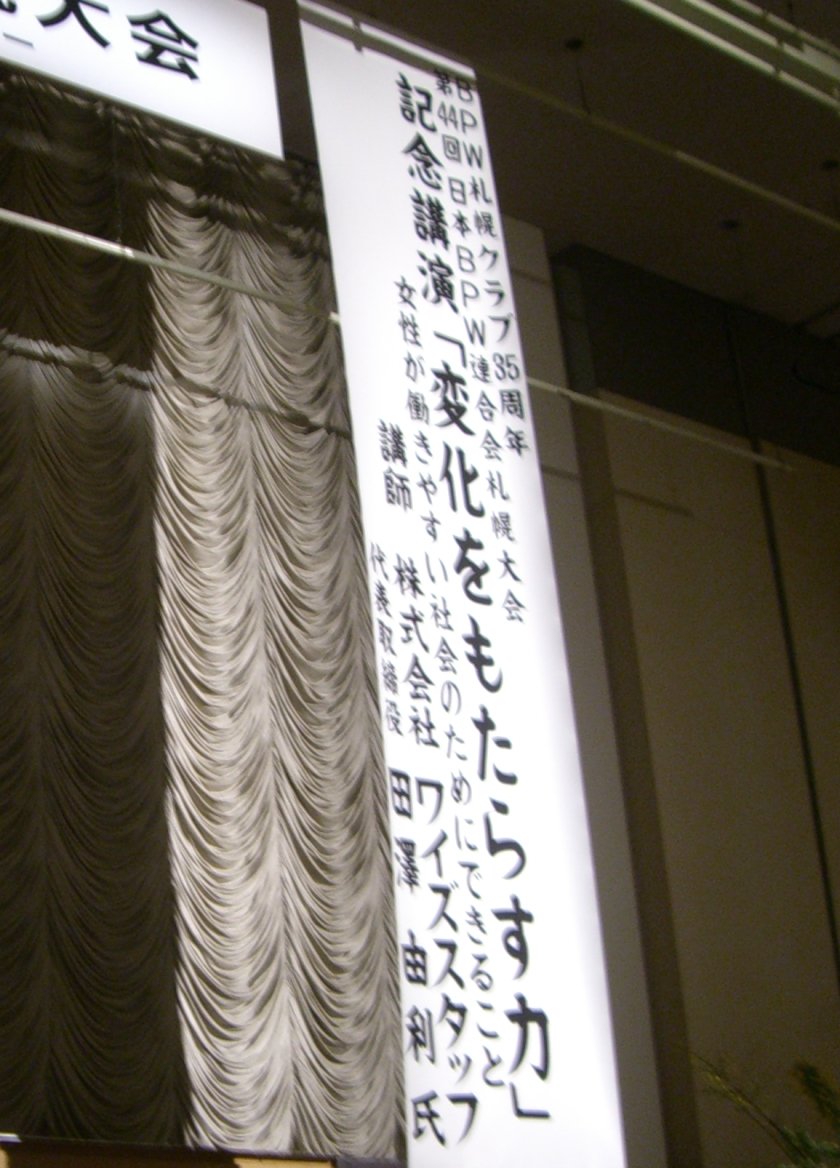 大会
BPW札幌クラブ35周年
第44回日本BPW連合会札幌大会
記念講演「変化をもたらす力」
女性が働きやすい社会のためにできること
講師 株式会社 ワイズスタッフ
代表取締役 田澤 由利 氏